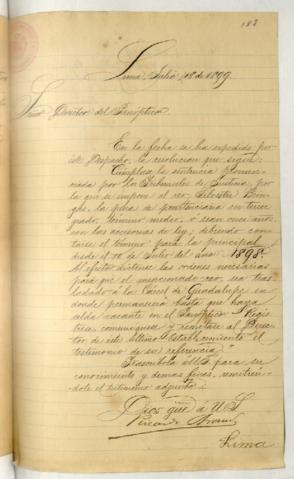 183
Lima, Julio 18 de 1899.
Señor Director del Panóptico
En la fecha se ha expedido por
este Despacho, la resolucion que sigue:
"Cúmplase la sentencia pronun-
ciada por los Tribunales de Justicia, por
la que se impone al reo Silvestre
la pena de penitenciaria en tercer
grado, término medio, ó sean once años,
con las accesorias de ley; debiendo con-
tarse el término para la principal
desde el 10 de Julio del año 1898.
Al efecto dictense las ordenes necesarias
para que el mencionado reo sea tras-
ladado á la Carcel de Guadalupe en
donde permanecerá hasta que haya
celda vacante en el Panóptico. Regis-
trese, comuniquese y remitase al Direc-
tor de este último Establecimiento el
testimonio de su referencia."
Trascríbola á US. para su
conocimiento y demas fines, remitién-
dole el testimonio adjunto.
Dios gue á US.
Ricardo
Lima